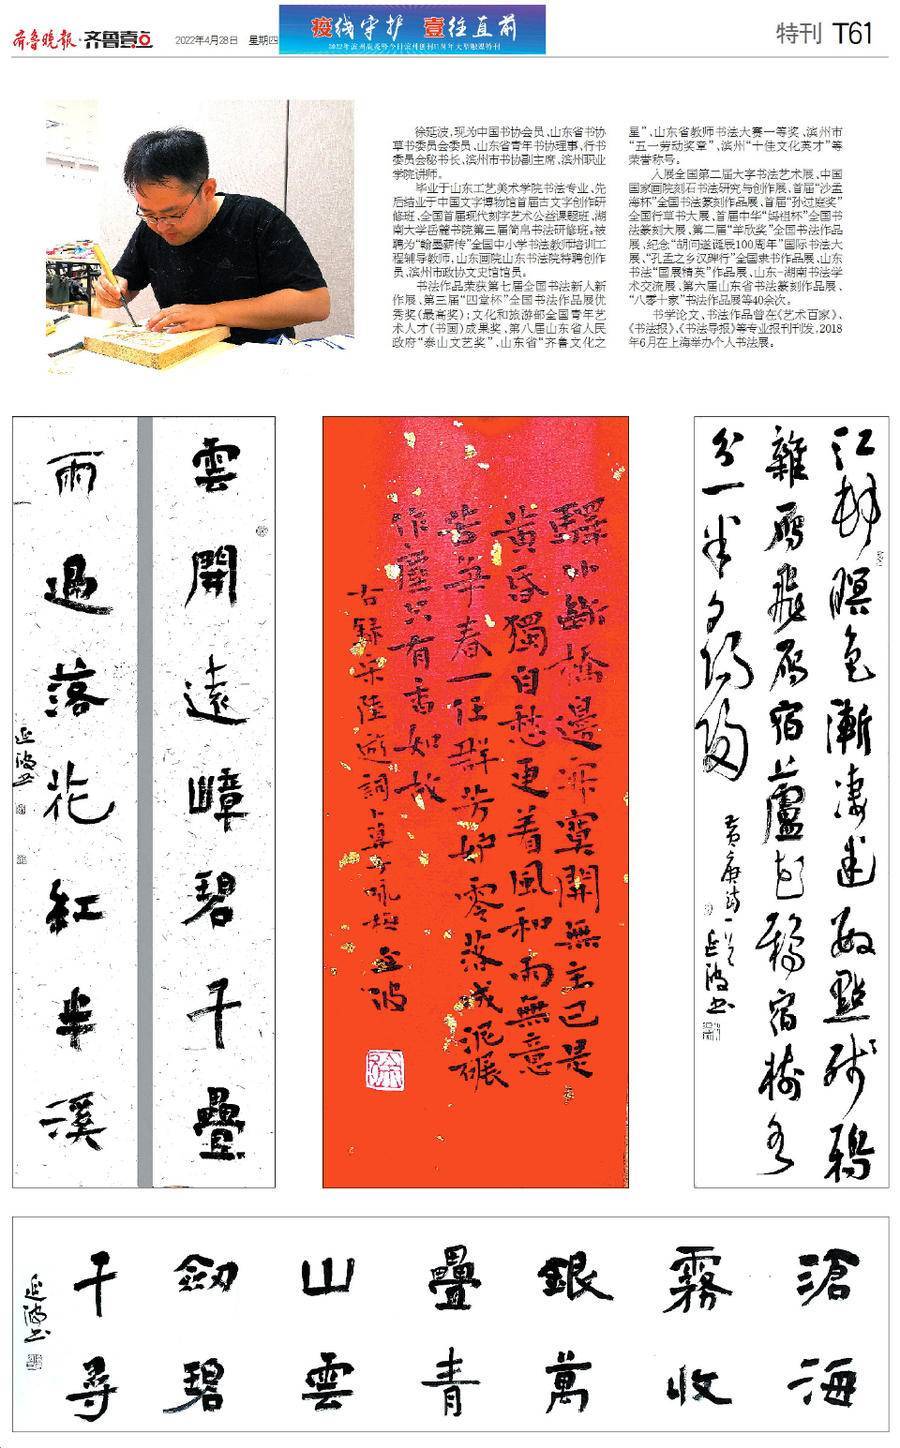 齐鲁晚报·齐鲁壹点
2022年4月28日 星期四
疫线守护 壹往直前
特刊 T61
徐延波,现为中国书协会员、山东省书协
草书委员会委员、山东省青年书协理事、行书
委员会秘书长、滨州市书协副主席、滨州职业
学院讲师。
毕业于山东工艺美术学院书法专业、先
后结业于中国文字博物馆首届古文字创作研
修班、全国首届现代刻字艺术公益课题班、湖
南大学岳麓书院第三届简帛书法研修班。被
聘为“翰墨薪传”全国中小学书法教师培训工
程辅导教师、山东画院山东书法院特聘创作
员、滨州市政协文史馆馆员。
书法作品荣获第七届全国书法新人新
作展、第三届“四堂杯”全国书法作品展优
秀奖(最高奖);文化和旅游部全国青年艺
术人才(书画)成果奖、第八届山东省人民
政府“泰山文艺奖”、山东省“齐鲁文化之
星”、山东省教师书法大赛一等奖、滨州市
“五一劳动奖章”、滨州“十佳文化英才”等
荣誉称号。
入展全国第二届大字书法艺术展、中国
国家画院刻石书法研究与创作展、首届“沙孟
海杯”全国书法篆刻作品展、首届“孙过庭奖”
全国行草书大展、首届中华“妈祖杯”全国书
法篆刻大展、第二届“羊欣奖”全国书法作品
展、纪念“胡问遂诞辰100周年”国际书法大
展、“孔孟之乡汉碑行”全国隶书作品展、山东
书法“国展精英”作品展、山东-湖南书法学
术交流展、第六届山东省书法篆刻作品展、
“八零十家”书法作品展等40余次。
书学论文、书法作品曾在《艺术百家》、
《书法报》、《书法导报》等专业报刊刊发,2018
年6月在上海举办个人书法展。
雲開遠嶂碧千疊
雨過落花紅半溪
延波书
驛外斷橋邊寂寞開無主已是
黃昏獨自愁更着風和雨無意
苦爭春一任群芳妒零落成泥碾
作塵只有香如故
右録宋陸遊詞卜算子咏梅 延波
江村暝色漸凄迷數點殘鴉
雜雁飛雁宿蘆花鴉宿樹各
分一半夕陽
黄庚詩一首 延波书
滄海
霧收
銀萬
疊青
山雲
劒碧
千尋
延波书